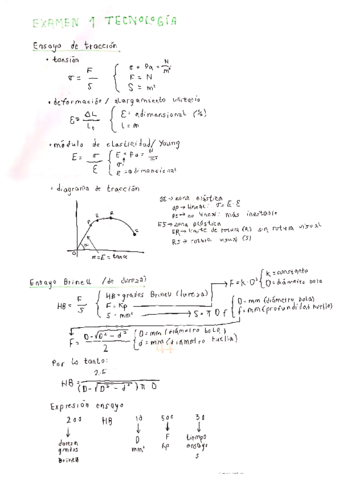 EXAMEN 1 TECNOLOGÍA
Ensayo de tracción
• tensión
σ = F/S { σ = Pa = N/m²
F = N
S = m²
• deformación / alargamiento unitario
ε = ΔL/L₀ { ε = adimensional (%)
L = m
• módulo de elasticidad / Young
E = σ/ε { E = Pa =
σ
ε = adimensional
• diagrama de tracción
OE → zona elástica
OP → lineal: σ = E · ε
PE → no lineal: más inestable
ES → zona plástica
ER → límite de rotura (R) sin rotura visual
RS → rotura visual (S)
α = E = tan α
Ensayo Brinell (de dureza)
HB = F/S { HB = grados Brinell (dureza)
F = Kp
S = mm²
F = k · D² { k = constante
D = diámetro bola
S = π D f { D = mm (diámetro bola)
f = mm (profundidad huella)
f = (D - √(D² - d²))/2 { D = mm (diámetro bola)
d = mm (diámetro huella)
Por lo tanto:
HB =
(D - √(D² - d²)) π D
Expresión ensayo
200 HB 10 500 30
dureza grados Brinell
D
mm
F
Kp
tiempo ensayo
s